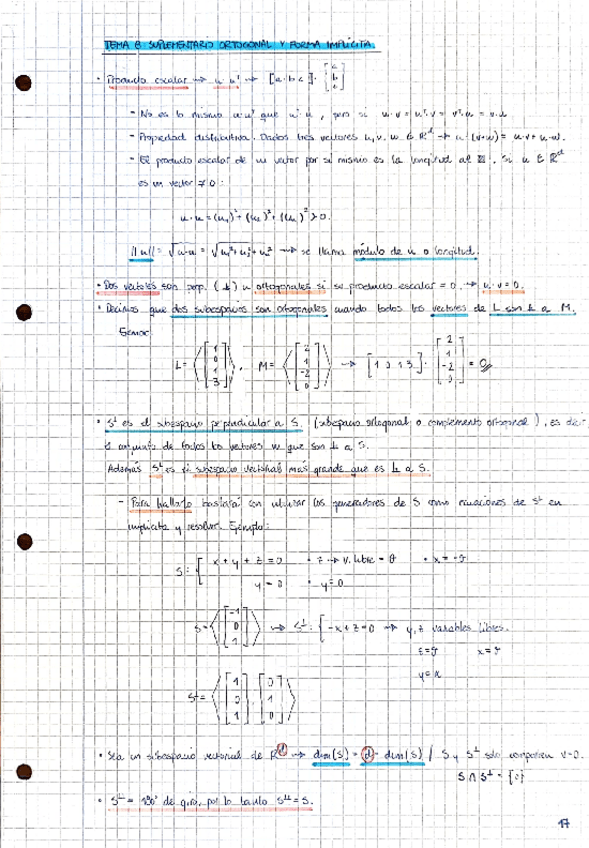 TEMA 8: SUPLEMENTARIO ORTOGONAL Y FORMA IMPLÍCITA.
· Producto escalar → u · u' → [a b c] · [a b c]
- No es lo mismo u·uᵀ que uᵀ·u, pero si u·v = uᵀ·v = vᵀ·u = v·u
- Propiedad distributiva. Dados tres vectores u, v, w ∈ ℝᵈ → u·(v+w) = u·v + u·w.
- El producto escalar de un vector por si mismo es la longitud al . Si u ∈ ℝᵈ
es un vector ≠ 0:
u·u = (u₁)² + (u₂)² + (u₃)² > 0.
||u|| = √u·u = √u₁²+u₂²+u₃² → se llama módulo de u o longitud.
· Dos vectores son perp. (⊥) u ortogonales si su producto escalar = 0. → u·v = 0.
· Decimos que dos subespacios son ortogonales cuando todos los vectores de L son ⊥ a M.
L = ⟨[1 0 1 3]⟩, M = ⟨[2 1 -2 0]⟩ → [1 0 1 3] · [2 1 -2 0] = 0
· S⊥ es el subespacio perpendicular a S. (subespacio ortogonal o complemento ortogonal), es decir
el conjunto de todos los vectores que son ⊥ a S.
Además S⊥ es el subespacio vectorial más grande que es ⊥ a S.
- Para hallarlo bastará con utilizar los generadores de S como ecuaciones de S⊥ en
implícita y resolver. Ejemplo:
S = { x + y + z = 0 · z → v. libre = · x = -
y = 0 · y = 0
S = ⟨[-1 0 1]⟩ → S⊥: { -x + z = 0 → y, z variables libres.
z = x =
y =
S⊥ = ⟨[1 0 1], [0 1 0]⟩
· Sea un subespacio vectorial de ℝᵈ → dim(S) = d - dim(S) / S y S⊥ solo comparten v=0.
S ∩ S⊥ = {0}
· S⊥ = de giro, por lo tanto S⊥⊥ = S.
17